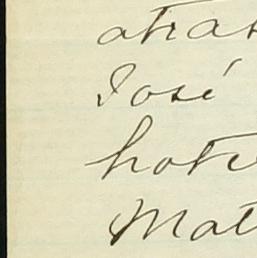 atras
José
hote
Mat